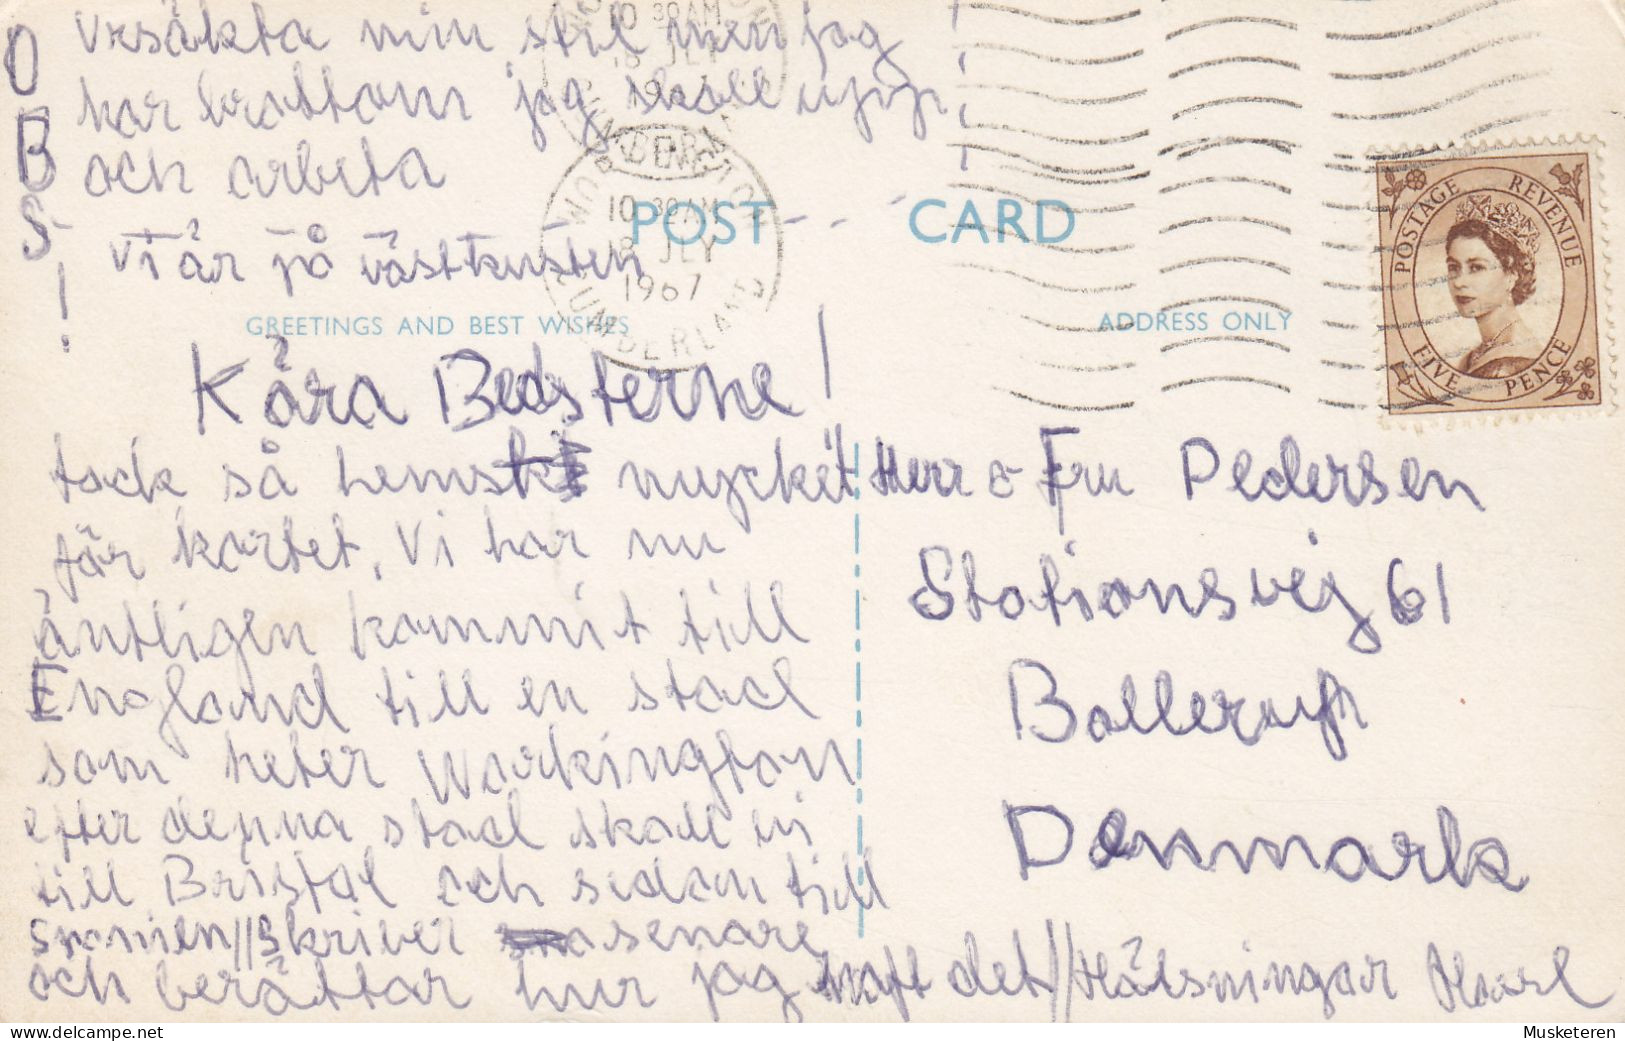 OBS!
Ursäkta min stil men jag
har brottom jag skall upp
och arbeta
Vi är på västkusten
POST CARD
10 30 AM
18 JLY
1967
WORKINGTON
CUMBERLAND
10 30 AM
18 JLY
1967
SUNDERLAND
POSTAGE REVENUE
FIVE PENCE
GREETINGS AND BEST WISHES
ADDRESS ONLY
Kära Bedsterne!
tack så hemskt mycket
för kortet. Vi har nu
äntligen kommit till
England till en stad
som heter Workington
efter denna stad skall vi
till Bristol och sedan till
Spanien // Skriver senare
och berättar hur jag haft det // Hälsningar
Herr & Fru Pedersen
Stationsvej 61
Ballerup
Danmark
Musketeren